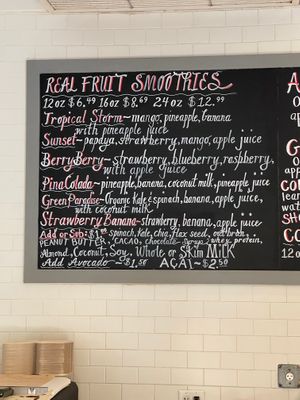 REAL FRUIT SMOOTHIES
12oz $6.49 16oz $8.69 24oz $12.99
Tropical Storm~mango, pineapple, banana
with pineapple juice
Sunset~papaya, strawberry, mango, apple juice
BerryBerry~strawberry, blueberry, raspberry,
with apple juice
PinaColada~pineapple, banana, coconut milk, pineapple juice
Green Paradise~Organic kale & spinach, banana, apple juice,
with coconut milk
Strawberry Banana~strawberry, banana, apple juice
Add or Sub: $1 spinach, kale, chia, flax seed, oat bran,
PEANUT BUTTER, CACAO, chocolate whey protein,
Almond, Coconut, Soy, Whole or Skim MiLK
Add Avocado~$1.50 AÇAI~$2.50